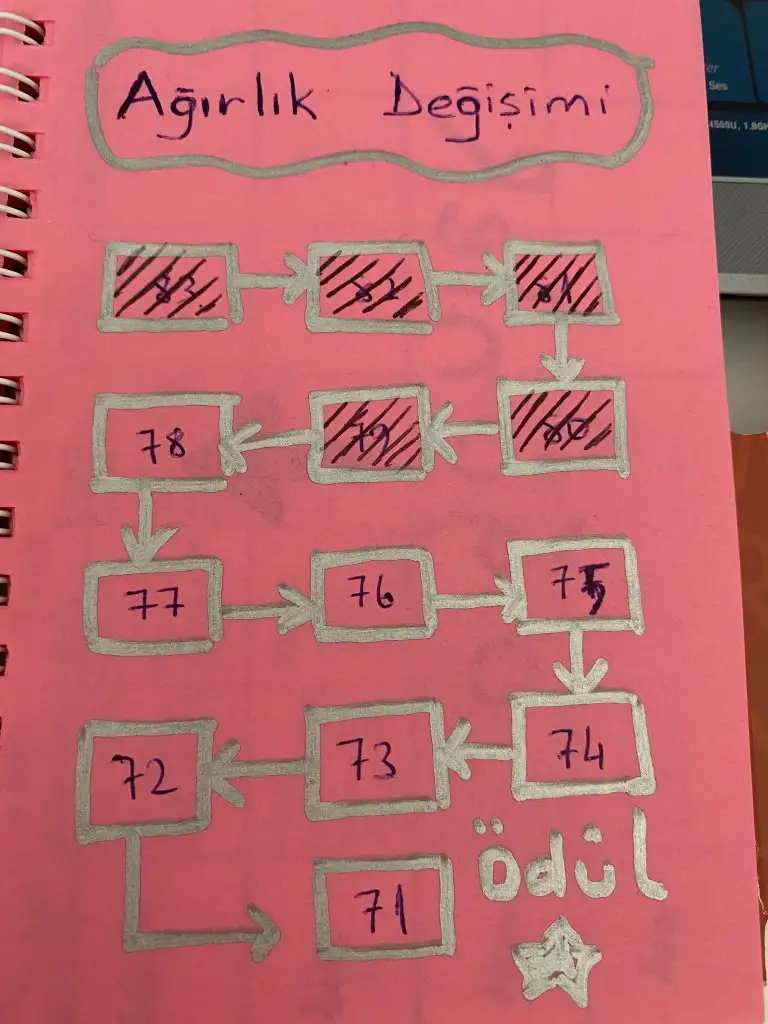 Ağırlık Değişimi
83 82 81
78 79 80
77 76 75
72 73 74
Ödül
71
Ses
4500U, 1.8GH